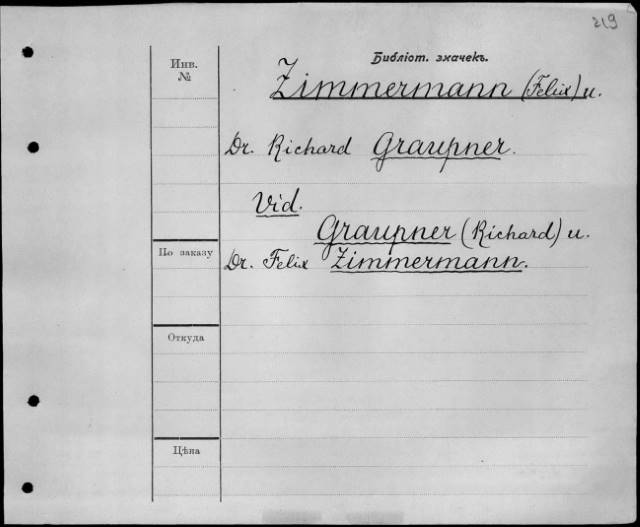 219
Библіот. значекъ.
Инв.
№
Zimmermann (Felix) u.
Dr. Richard Graupner.
Vid.
Graupner (Richard) u.
По заказу
Dr. Felix Zimmermann.
Откуда
Цѣна